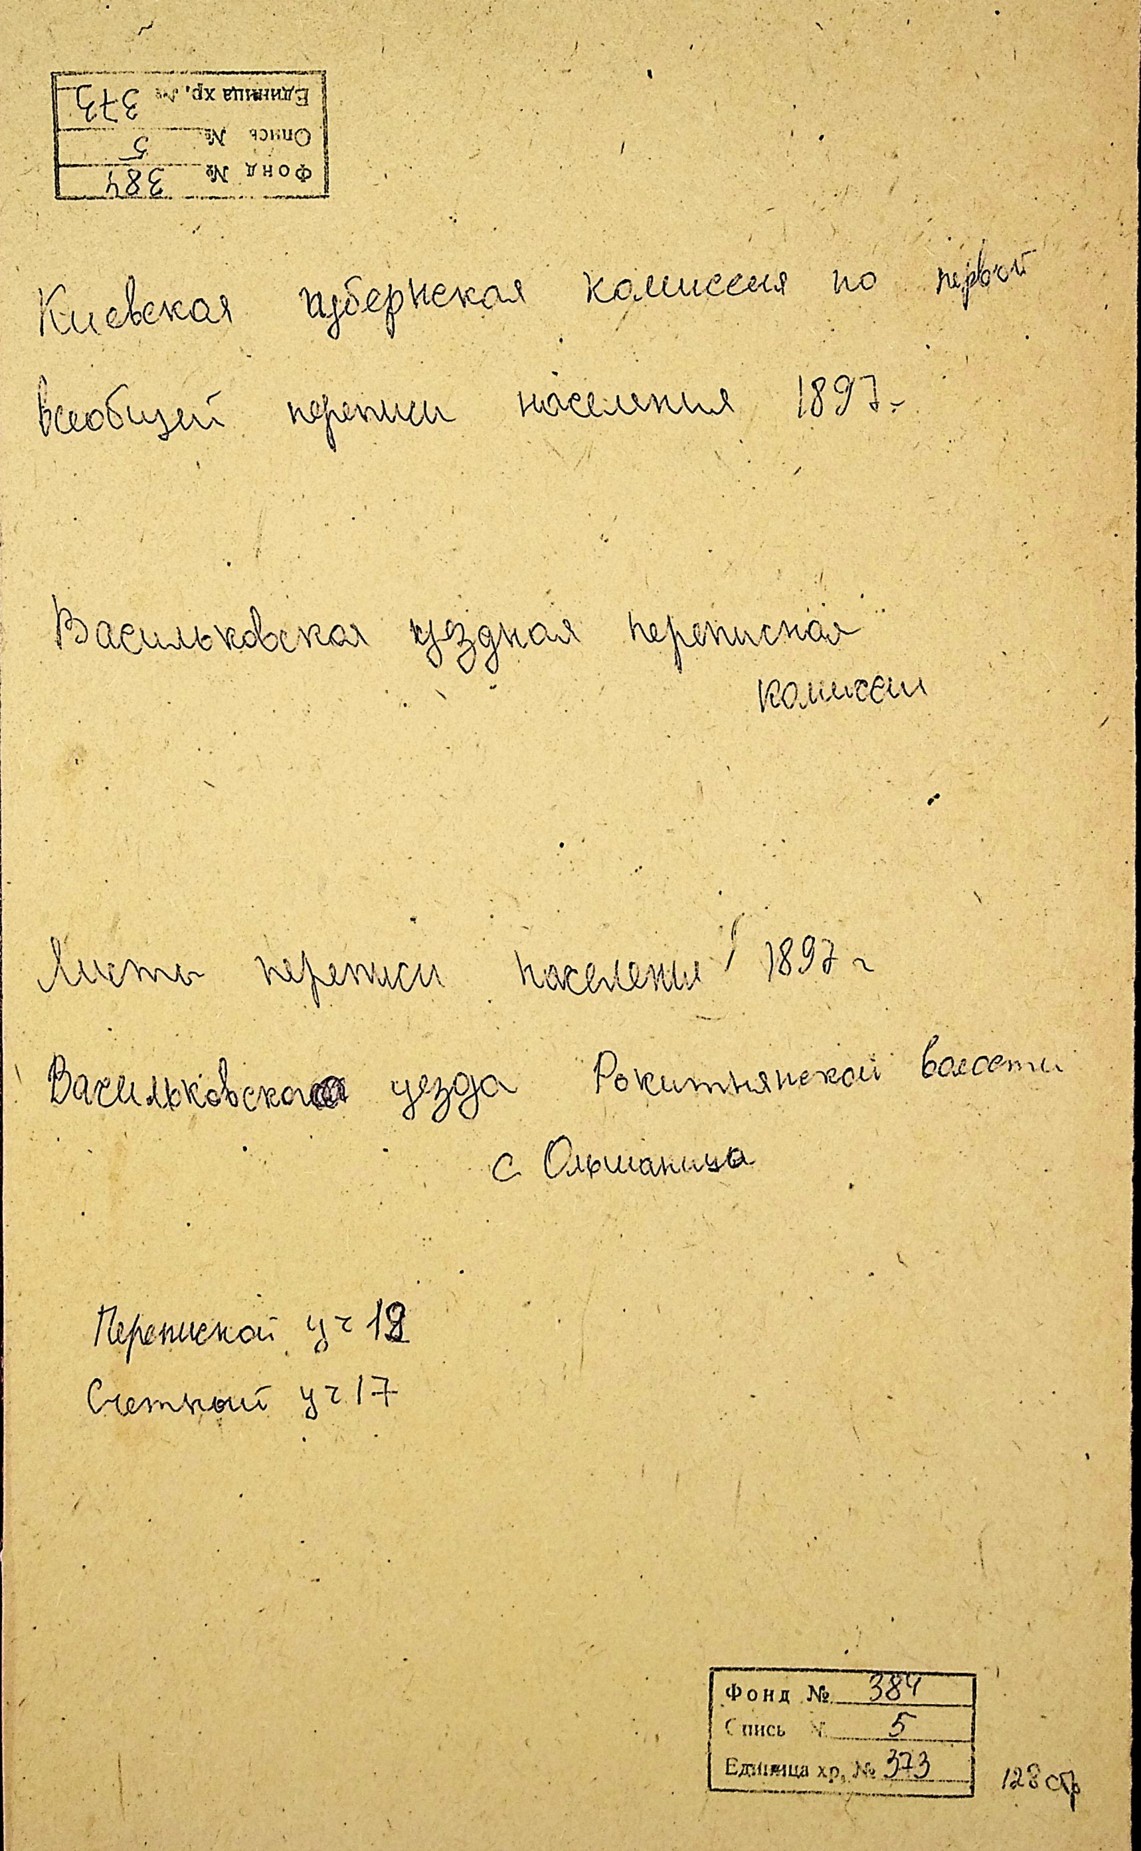 Единица хр. № 373
Опись № 5
Фонд № 384
Киевская губернская комиссия по первой
всеобщей переписи населения 1897г.
Васильковская уездная переписная
комиссии
Листы переписи населения 1897 г
Васильковского уезда Рокитнянской волости
с Ольшаница
Переписной уч 12
Счетный уч 17
Фонд № 384
Опись № 5
Единица хр. № 373
128 стр